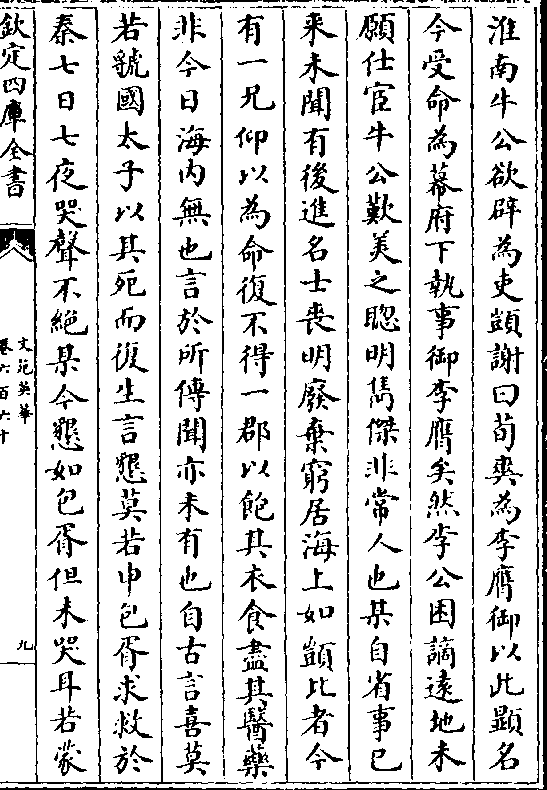 淮南牛公欲辟為吏顗謝曰荀爽為李膺御以此顯名
今受命為幕府下執事御李膺矣然李公困謫遠地未
願仕宦牛公歎美之聰明雋傑非常人也某自省事已
來未聞有後進名士喪明廢棄窮居海上如顗比者今
有一兄仰以為命復不得一郡以飽其衣食盡其醫藥
非今日海內無也言於所傳聞亦未有也自古言喜莫
若虢國太子以其死而復生言懇莫若申包胥求救於
秦七日七夜哭聲不絕某今懇如包胥但未哭耳若蒙
欽定四庫全書
文苑英華
卷六百六十
九